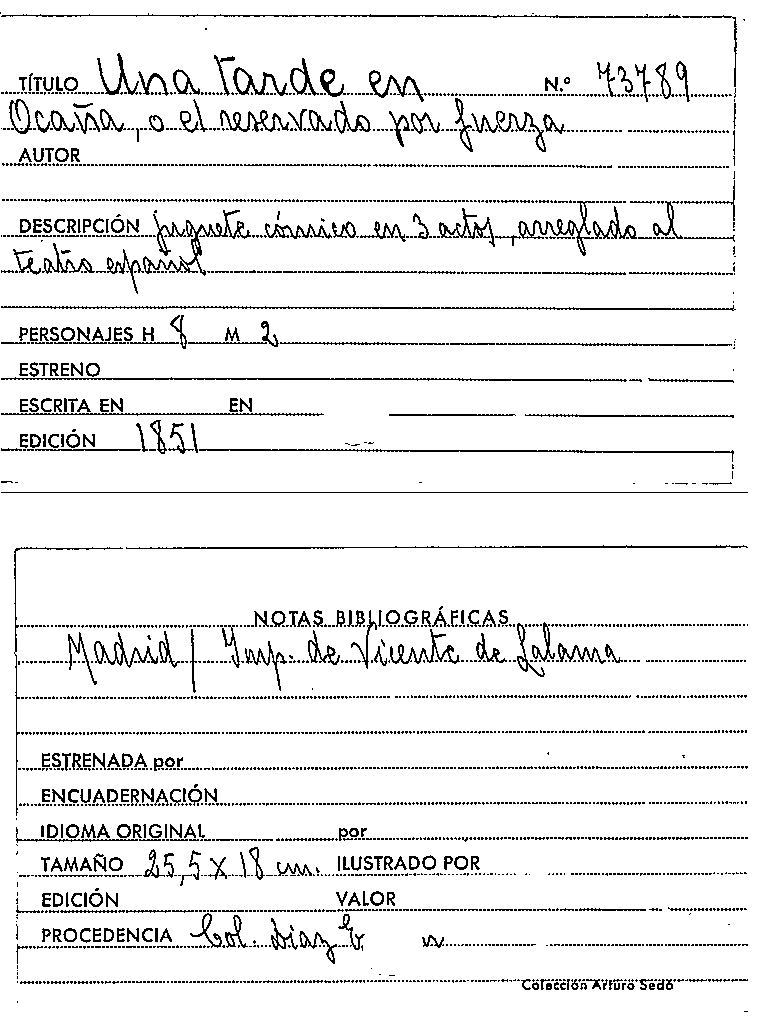 TÍTULO Una tarde en N.º 73789
Ocaña, o el reservado por fuerza
AUTOR
DESCRIPCIÓN juguete cómico en 3 actos, arreglado al
teatro español
PERSONAJES H 8 M 2
ESTRENO
ESCRITA EN EN
EDICIÓN 1851
NOTAS BIBLIOGRÁFICAS
Madrid / Imp. de Vicente de Lalama
ESTRENADA por
ENCUADERNACIÓN
IDIOMA ORIGINAL por
TAMAÑO 25,5 x 18 cm. ILUSTRADO POR
EDICIÓN VALOR
PROCEDENCIA Col. Díaz
Colección Arturo Sedó